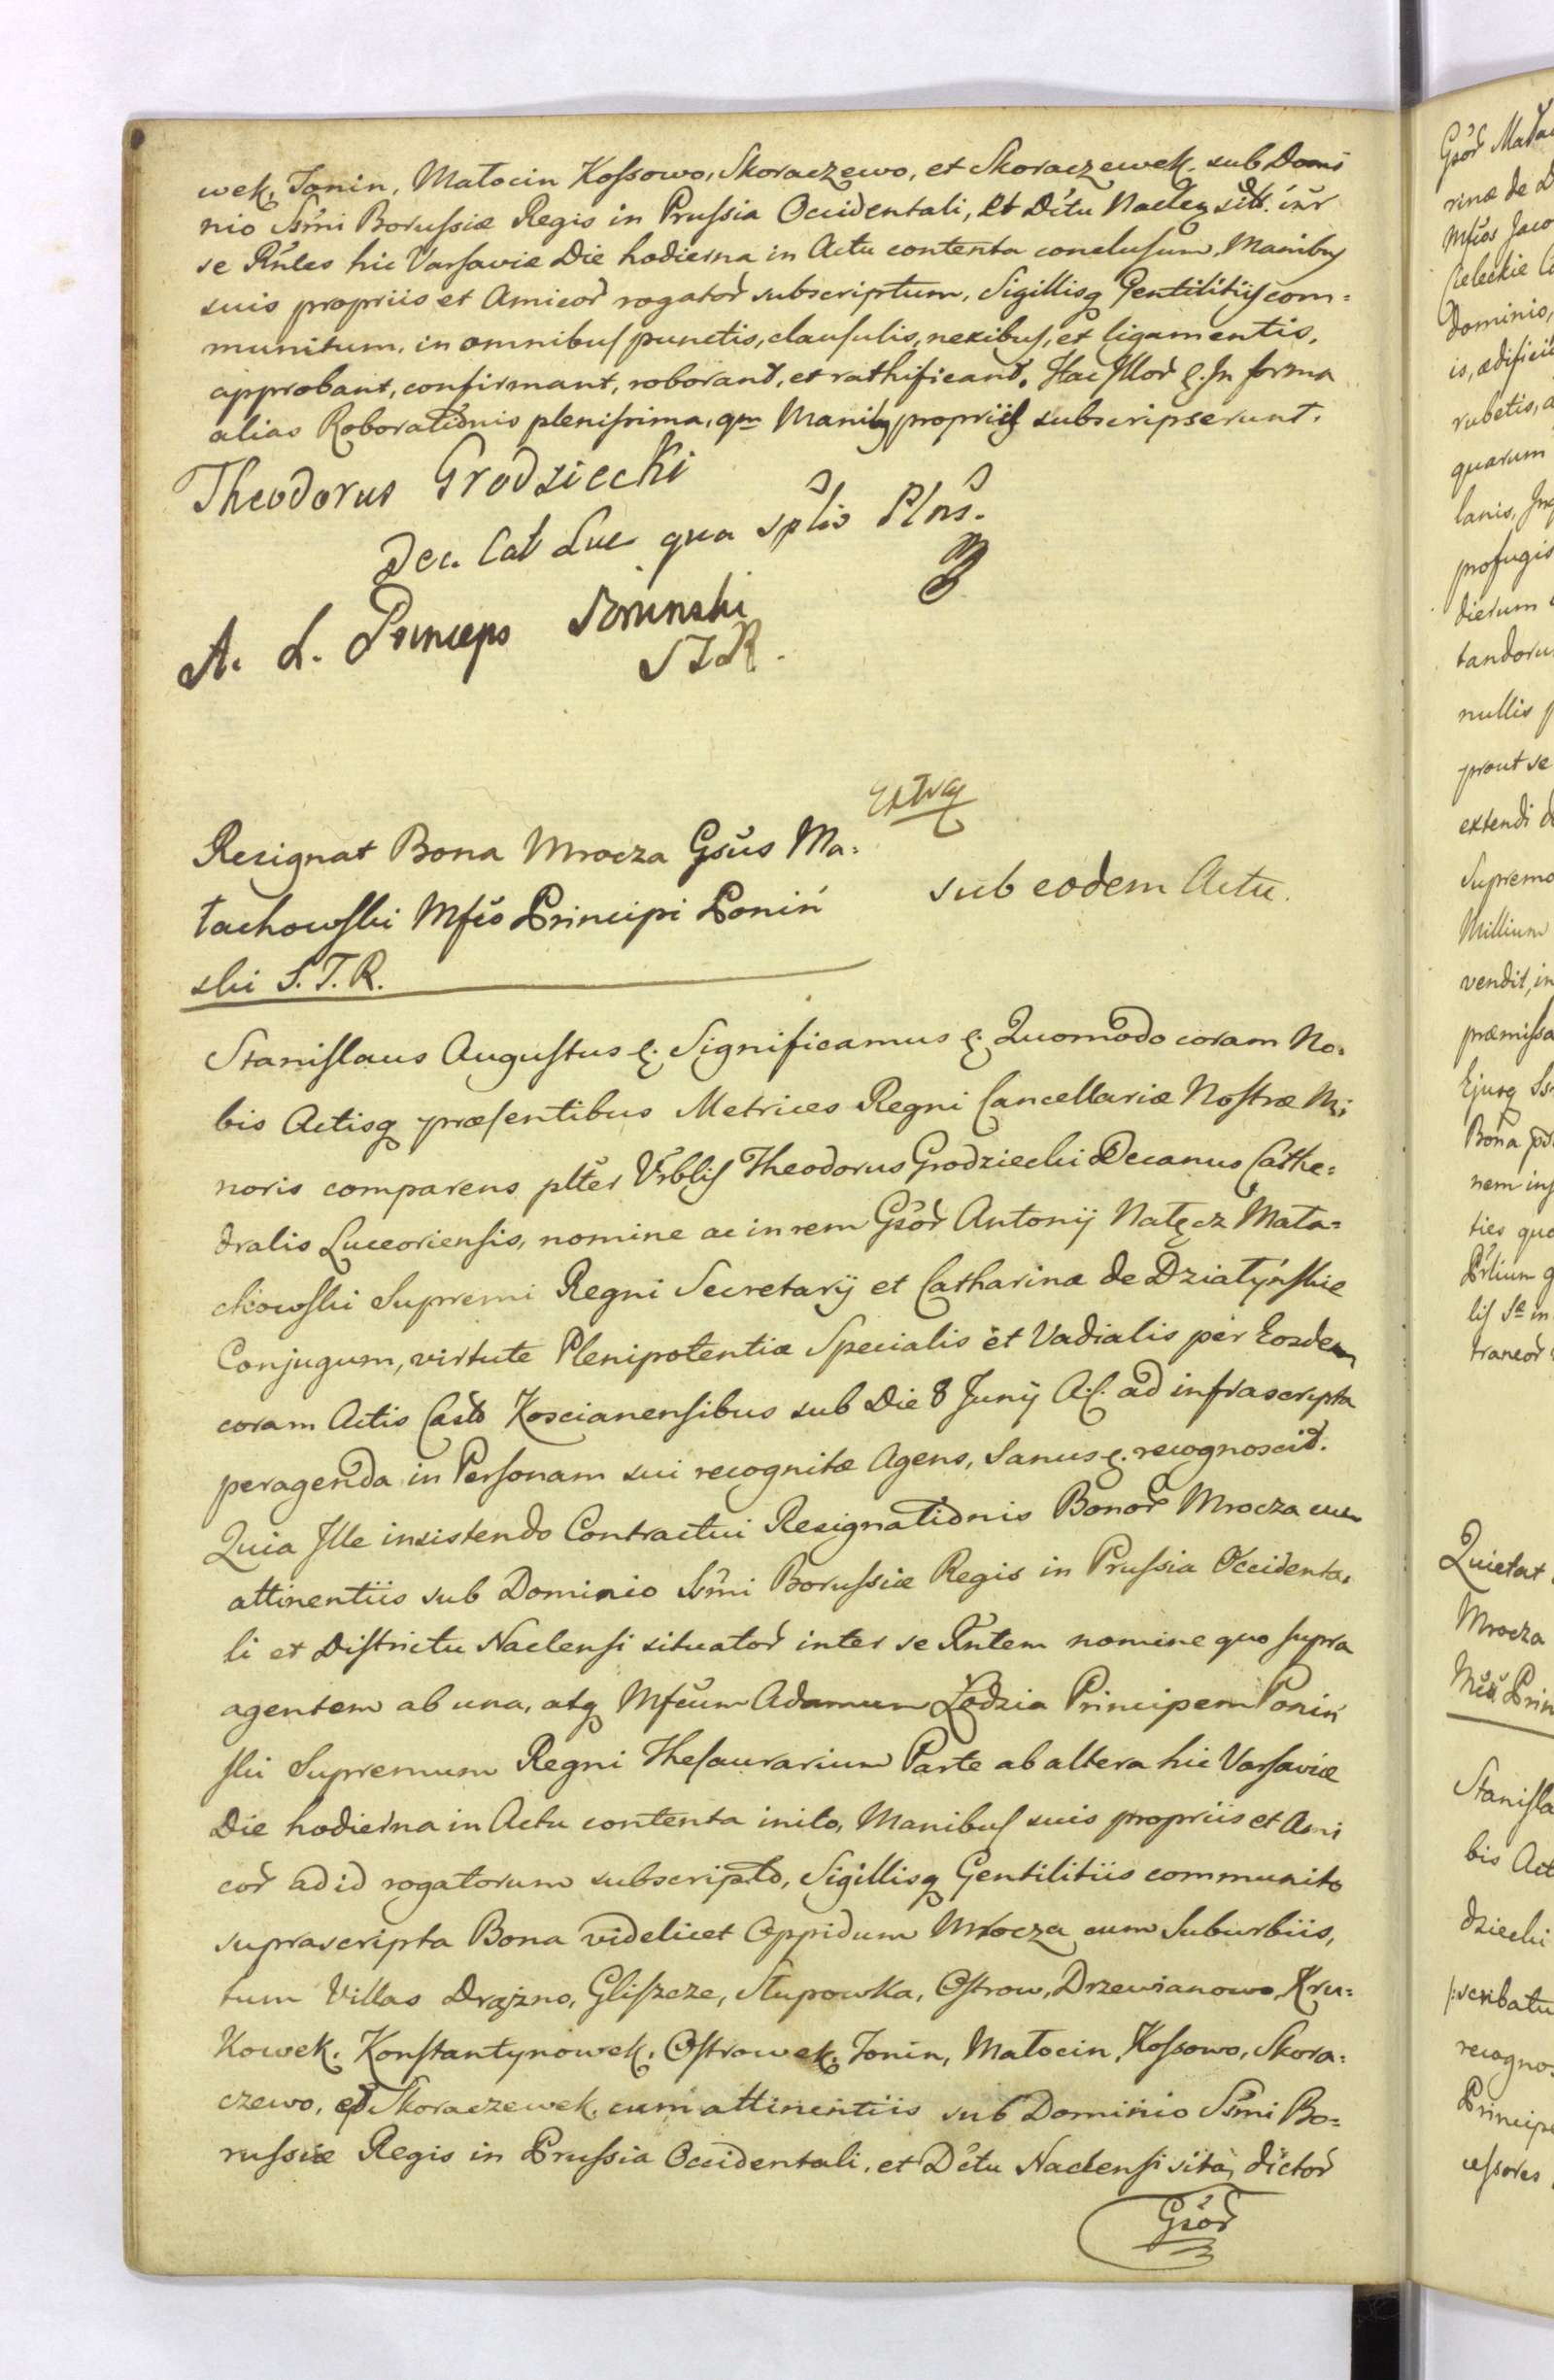 wek, Jonin, Małocin Kossowo, Skoraczewo, et Skoraczewek, sub Domi
nio Ssmi Borussiæ Regis in Prussia Occidentali, et Dctu Naclen sitt. intr
se Rntes hic Varsaviæ Die hodierna in Actu contenta conclusum, Manibus
suis propriis et Amicor rogator subscriptum, Sigillisq Gentilitiis com=
munitum, in omnibus punctis, clausulis, nexibus, et ligamentis,
approbant, confirmant, roborant, et rathificant. Hac Illor &. In forma
alias Roborationis plenissima, qm Manibq propriis subscripserunt.
Theodorus Grodziecki
Dec. Cat Luc qua splis Plns.
A. L. Princeps Poninski
S T R.
Extrad
Resignat Bona Mrocza Gsus Ma=
łachowski Mfco Principi Poniń
ski S. T. R.
sub eodem Actu.
Stanislaus Augustus &. Significamus &. Quomodo coram No=
bis Actisq præsentibus Metrices Regni Cancellariæ Nostræ Mi=
noris comparens plter Vrblis Theodorus Grodziecki Decanus Cathe=
dralis Luceoriensis, nomine ac in rem Gsor Antonij Nałęcz Mała=
chowski Supremi Regni Secretarij et Catharinæ de Działyńskie
Conjugum, virtute Plenipotentiæ Specialis et Vadialis per Eosdem
coram Actis Castr Koscianensibus sub Die 8 Junij A. C. ad infrascripta
peragenda in Personam sui recognitæ Agens, Sanus &. recognoscit.
Quia Ille insistendo Contractui Resignationis Bonor Mrocza cum
attinentiis sub Dominio Ssmi Borussiæ Regis in Prussia Occidenta=
li et Districtu Naclensi situator inter se Rntem nomine quo supra
agentem ab una, atq Mfcum Adamum Łodzia Principem Poniń
ski Supremum Regni Thesaurarium Parte ab altera hic Varsaviæ
Die hodierna in Actu contenta inito, Manibus suis propriis et Ami
cor ad id rogatorum subscripto, Sigillisq Gentilitiis communito
suprascripta Bona videlicet Oppidum Mrocza cum Suburbiis,
tum Villas Drążno, Gliszcze, Słupowka, Ostrow, Drzewianowo, Kru=
kowek, Konstantynowek, Ostrowek, Jonin, Małocin, Kossowo, Skora=
czewo, et Skoraczewek, cum attinentiis sub Dominio Ssmi Bo=
russiæ Regis in Prussia Occidentali, et Dctu Naclensi sita, dictor
Gsor